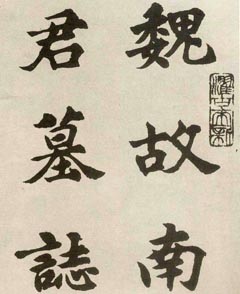 魏故南
君墓誌